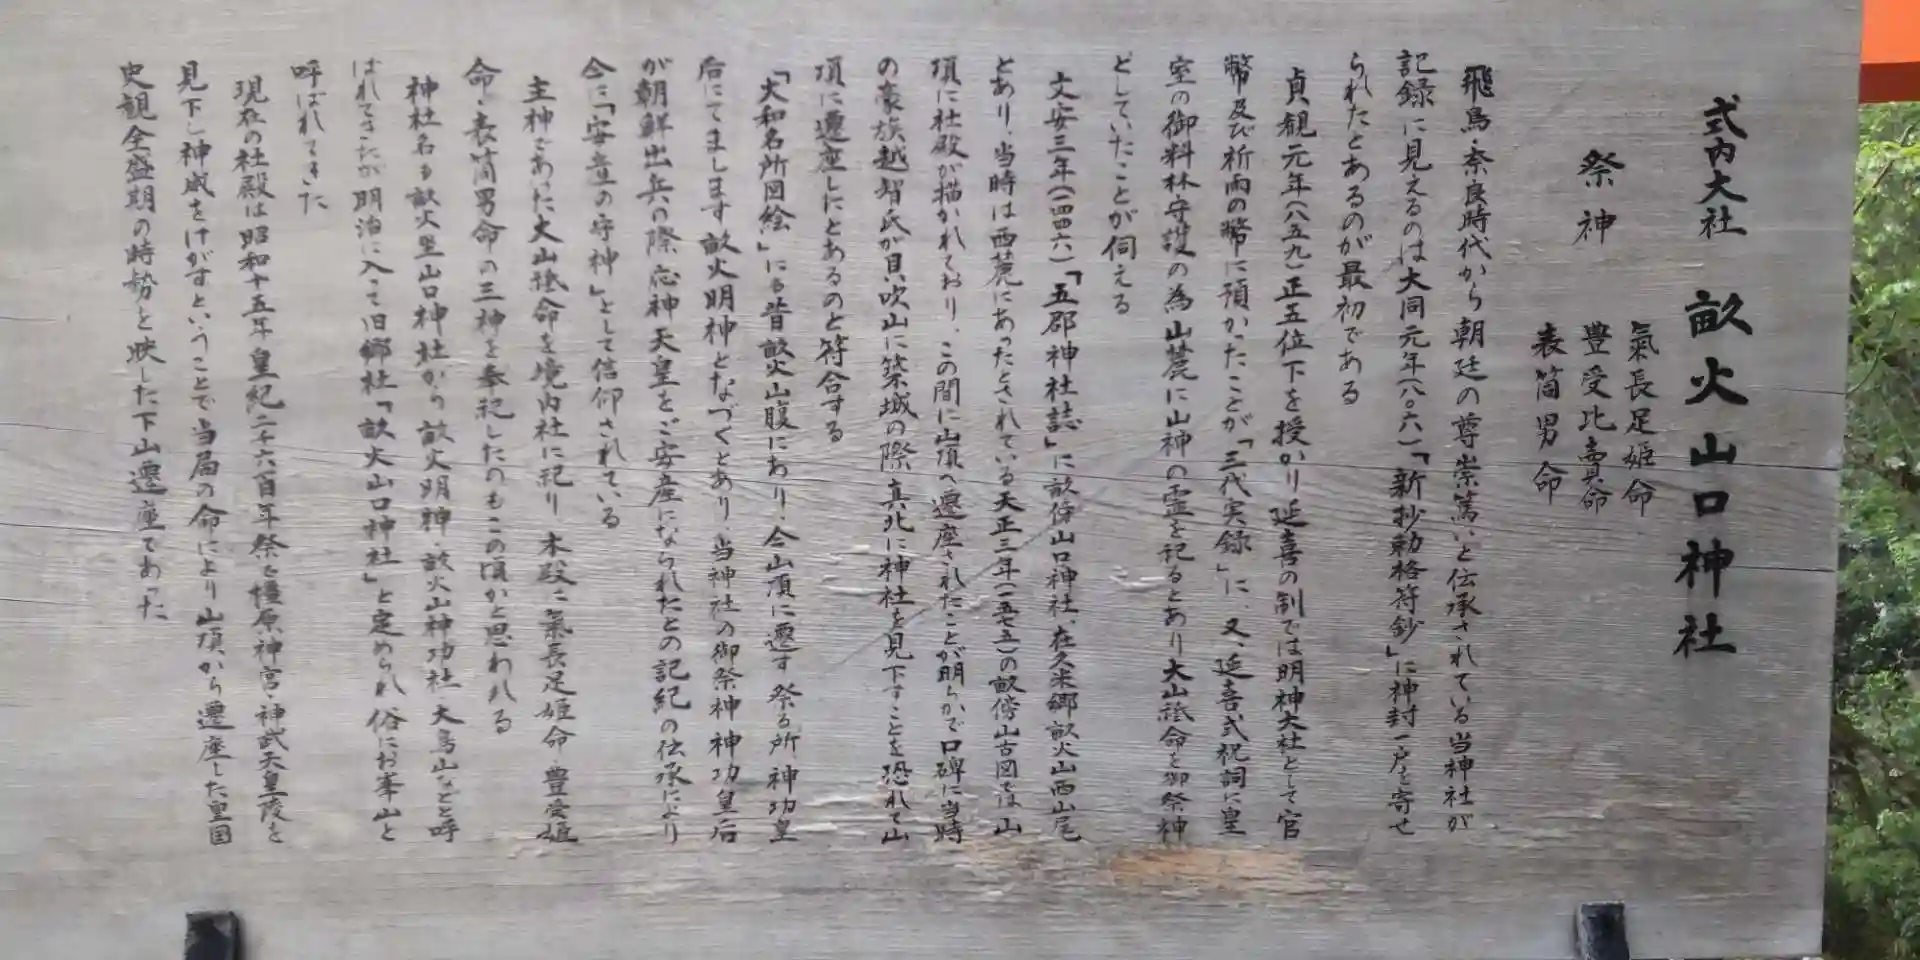 式内大社 畝火山口神社
祭神
氣長足姫命
豊受比売命
表筒男命
飛鳥・奈良時代から朝廷の尊崇篤いと伝承されている当神社が
記録に見えるのは大同元年(八〇六)「新抄勅格符鈔」に神封一戸を寄せ
られたとあるのが最初である
貞観元年(八五九)正五位下を授かり延喜の制では明神大社として官
幣及び祈雨の幣に預かったことが「三代実録」に、又、延喜式祝詞に皇
室の御料林守護の為山麓に山神の霊を祀るとあり大山祇命を御祭神
としていたことが伺える
文安三年(一四四六)「五郡神社誌」に畝傍山口神社、在久米郷畝火山西山尾
とあり、当時は西麓にあったとされている天正三年(一五七五)の畝傍山古図では山
頂に社殿が描かれており、この間に山頂へ遷座されたことが明らかで口碑に当時
の豪族越智氏が貝吹山に築城の際、真北に神社を見下すことを恐れて山
頂に遷座したとあるのと符合する
「大和名所図絵」にも昔畝火山腹にあり、今山頂に遷す祭る所神功皇
后にてまします畝火明神となづくとあり、当神社の御祭神神功皇后
が朝鮮出兵の際応神天皇をご安産になられたとの記紀の伝承により
今に「安産の守神」として信仰されている
主神であった大山祇命を境内社に祀り本殿に氣長足姫命・豊受姫
命・表筒男命の三神を奉祀したのもこの頃かと思われる
神社名も畝火坐山口神社から畝火明神 畝火山神功社 大鳥山などと呼
ばれてきたが明治に入って旧郷社「畝火山口神社」と定められ俗にお峯山と
呼ばれてきた
現在の社殿は昭和十五年皇紀二千六百年祭で橿原神宮・神武天皇陵を
見下し神威をけがすということで当局の命により山頂から遷座した皇国
史観全盛期の時勢を映した下山遷座であった